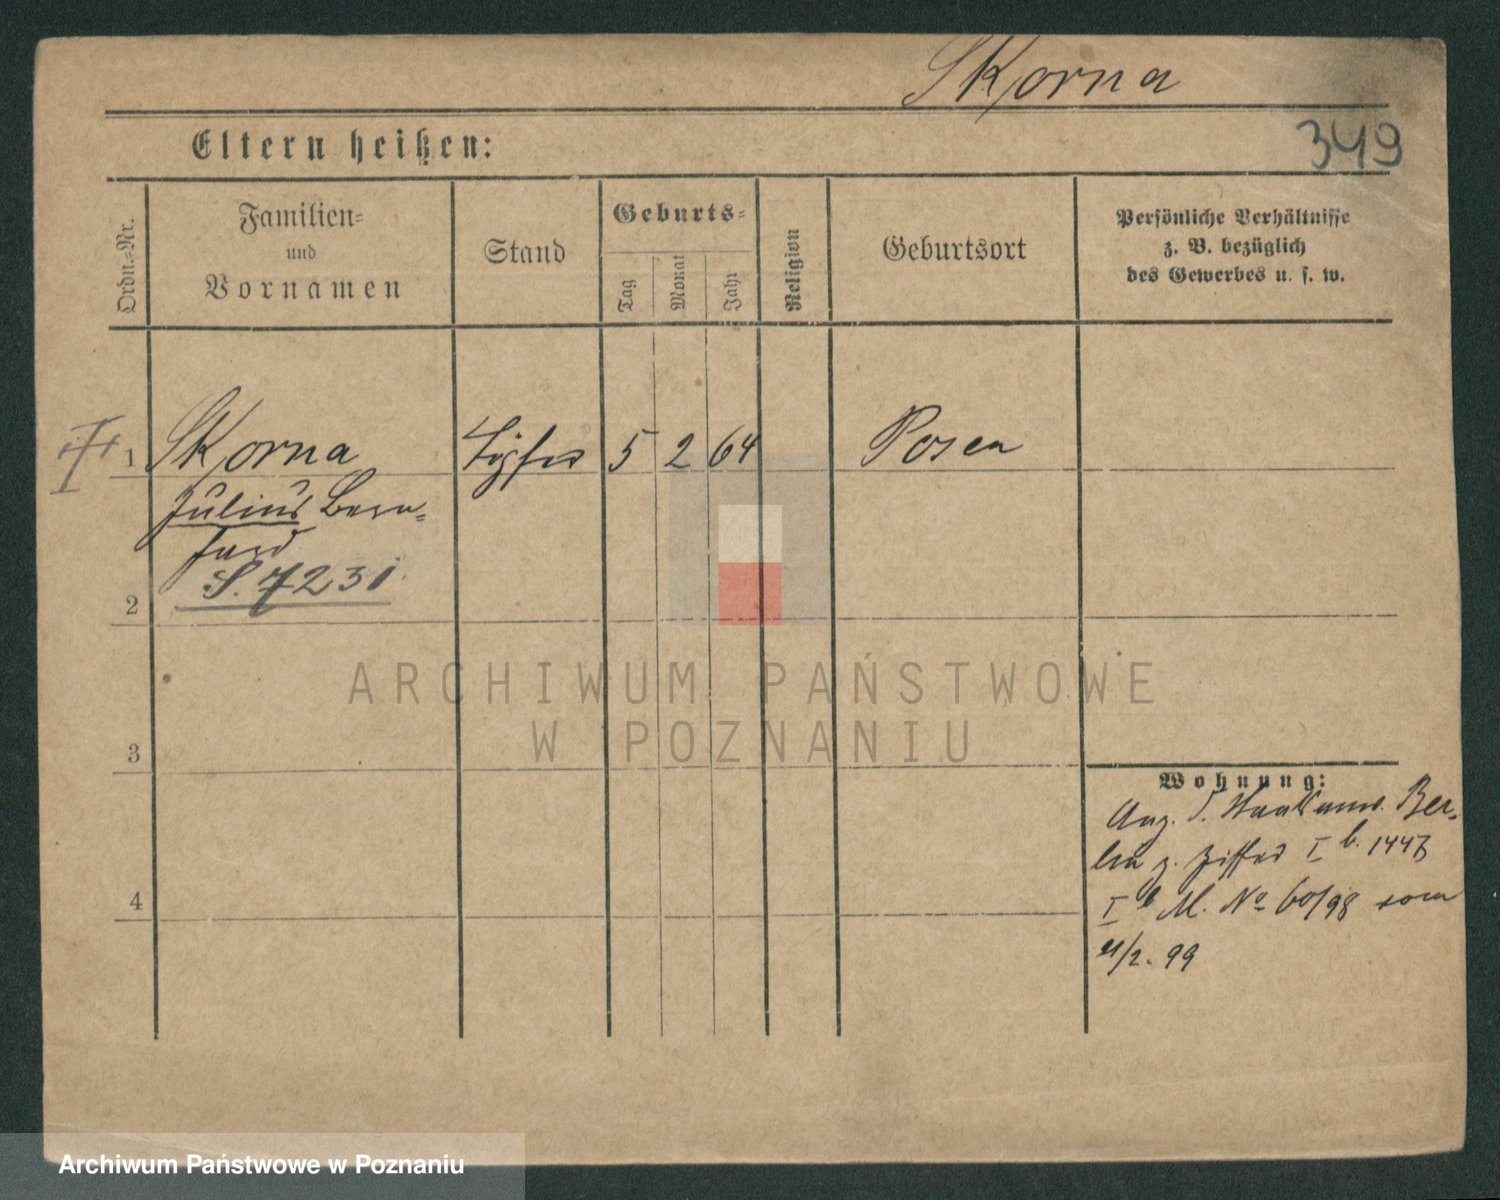 Skorna
349
Eltern heißen:
Ordn.-Nr.
Familien-
und
Vornamen
Stand
Geburts-
Tag
Monat
Jahr
Religion
Geburtsort
Persönliche Verhältnisse
z. B. bezüglich
des Gewerbes u. s. w.
1 Skorna Töpfer 5 2 64 Posen
Julius Bern-
hard
S. 7231
2
3
4
Wohnung:
Anz. d. Ber-
lin z. Ziffer I b. 1447
I b M. No 60/98 vom
/2. 99
ARCHIWUM PAŃSTWOWE
W POZNANIU
Archiwum Państwowe w Poznaniu